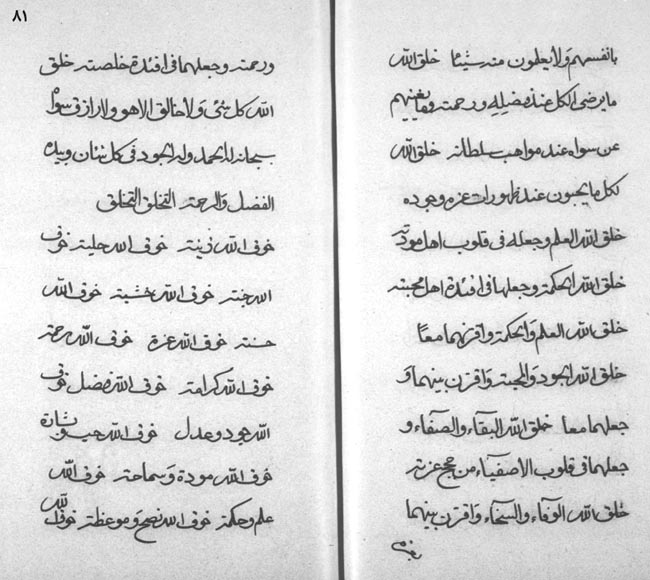 بانفسهم ولا يعلمون منه شيئا خلق الله
ما يرضى الكل عنده بفضله ورحمته وما يغنيهم
عن سواه عنده مواهب سلطانه خلق الله
لكل ما يحبون عنده ظهورات عزه وجوده
خلق الله العلم وجعله في قلوب اهل مودته
خلق الله الحكمة وجعلها في افئدة اهل محبته
خلق الله العلم والحكمة واقرنهما معا
خلق الله الجود والمحبة واقرن بينهما و
جعلهما معا خلق الله البقاء والصفاء و
جعلهما في قلوب الاصفياء من عزته
خلق الله الوفاء والسخاء واقرن بينهما
٨١
ورحمته وجعلهما في افئدة خلصته خلق
الله كل شئ ولا خالق الا هو ولا رازق سواه
سبحانه له الحمد وله الجود في كل شان وبيده
الفضل والرحمة التخلق التخلق
خوف الله زينة خوف الله حلية خوف
الله جنة خوف الله خشية خوف الله
حسنة خوف الله عزة خوف الله رحمة
خوف الله كرامة خوف الله فضل خوف
الله جود وعدل خوف الله حب وبشارة
خوف الله مودة وسماحة خوف الله
علم وحكمة خوف الله نصح وموعظة خوف الله